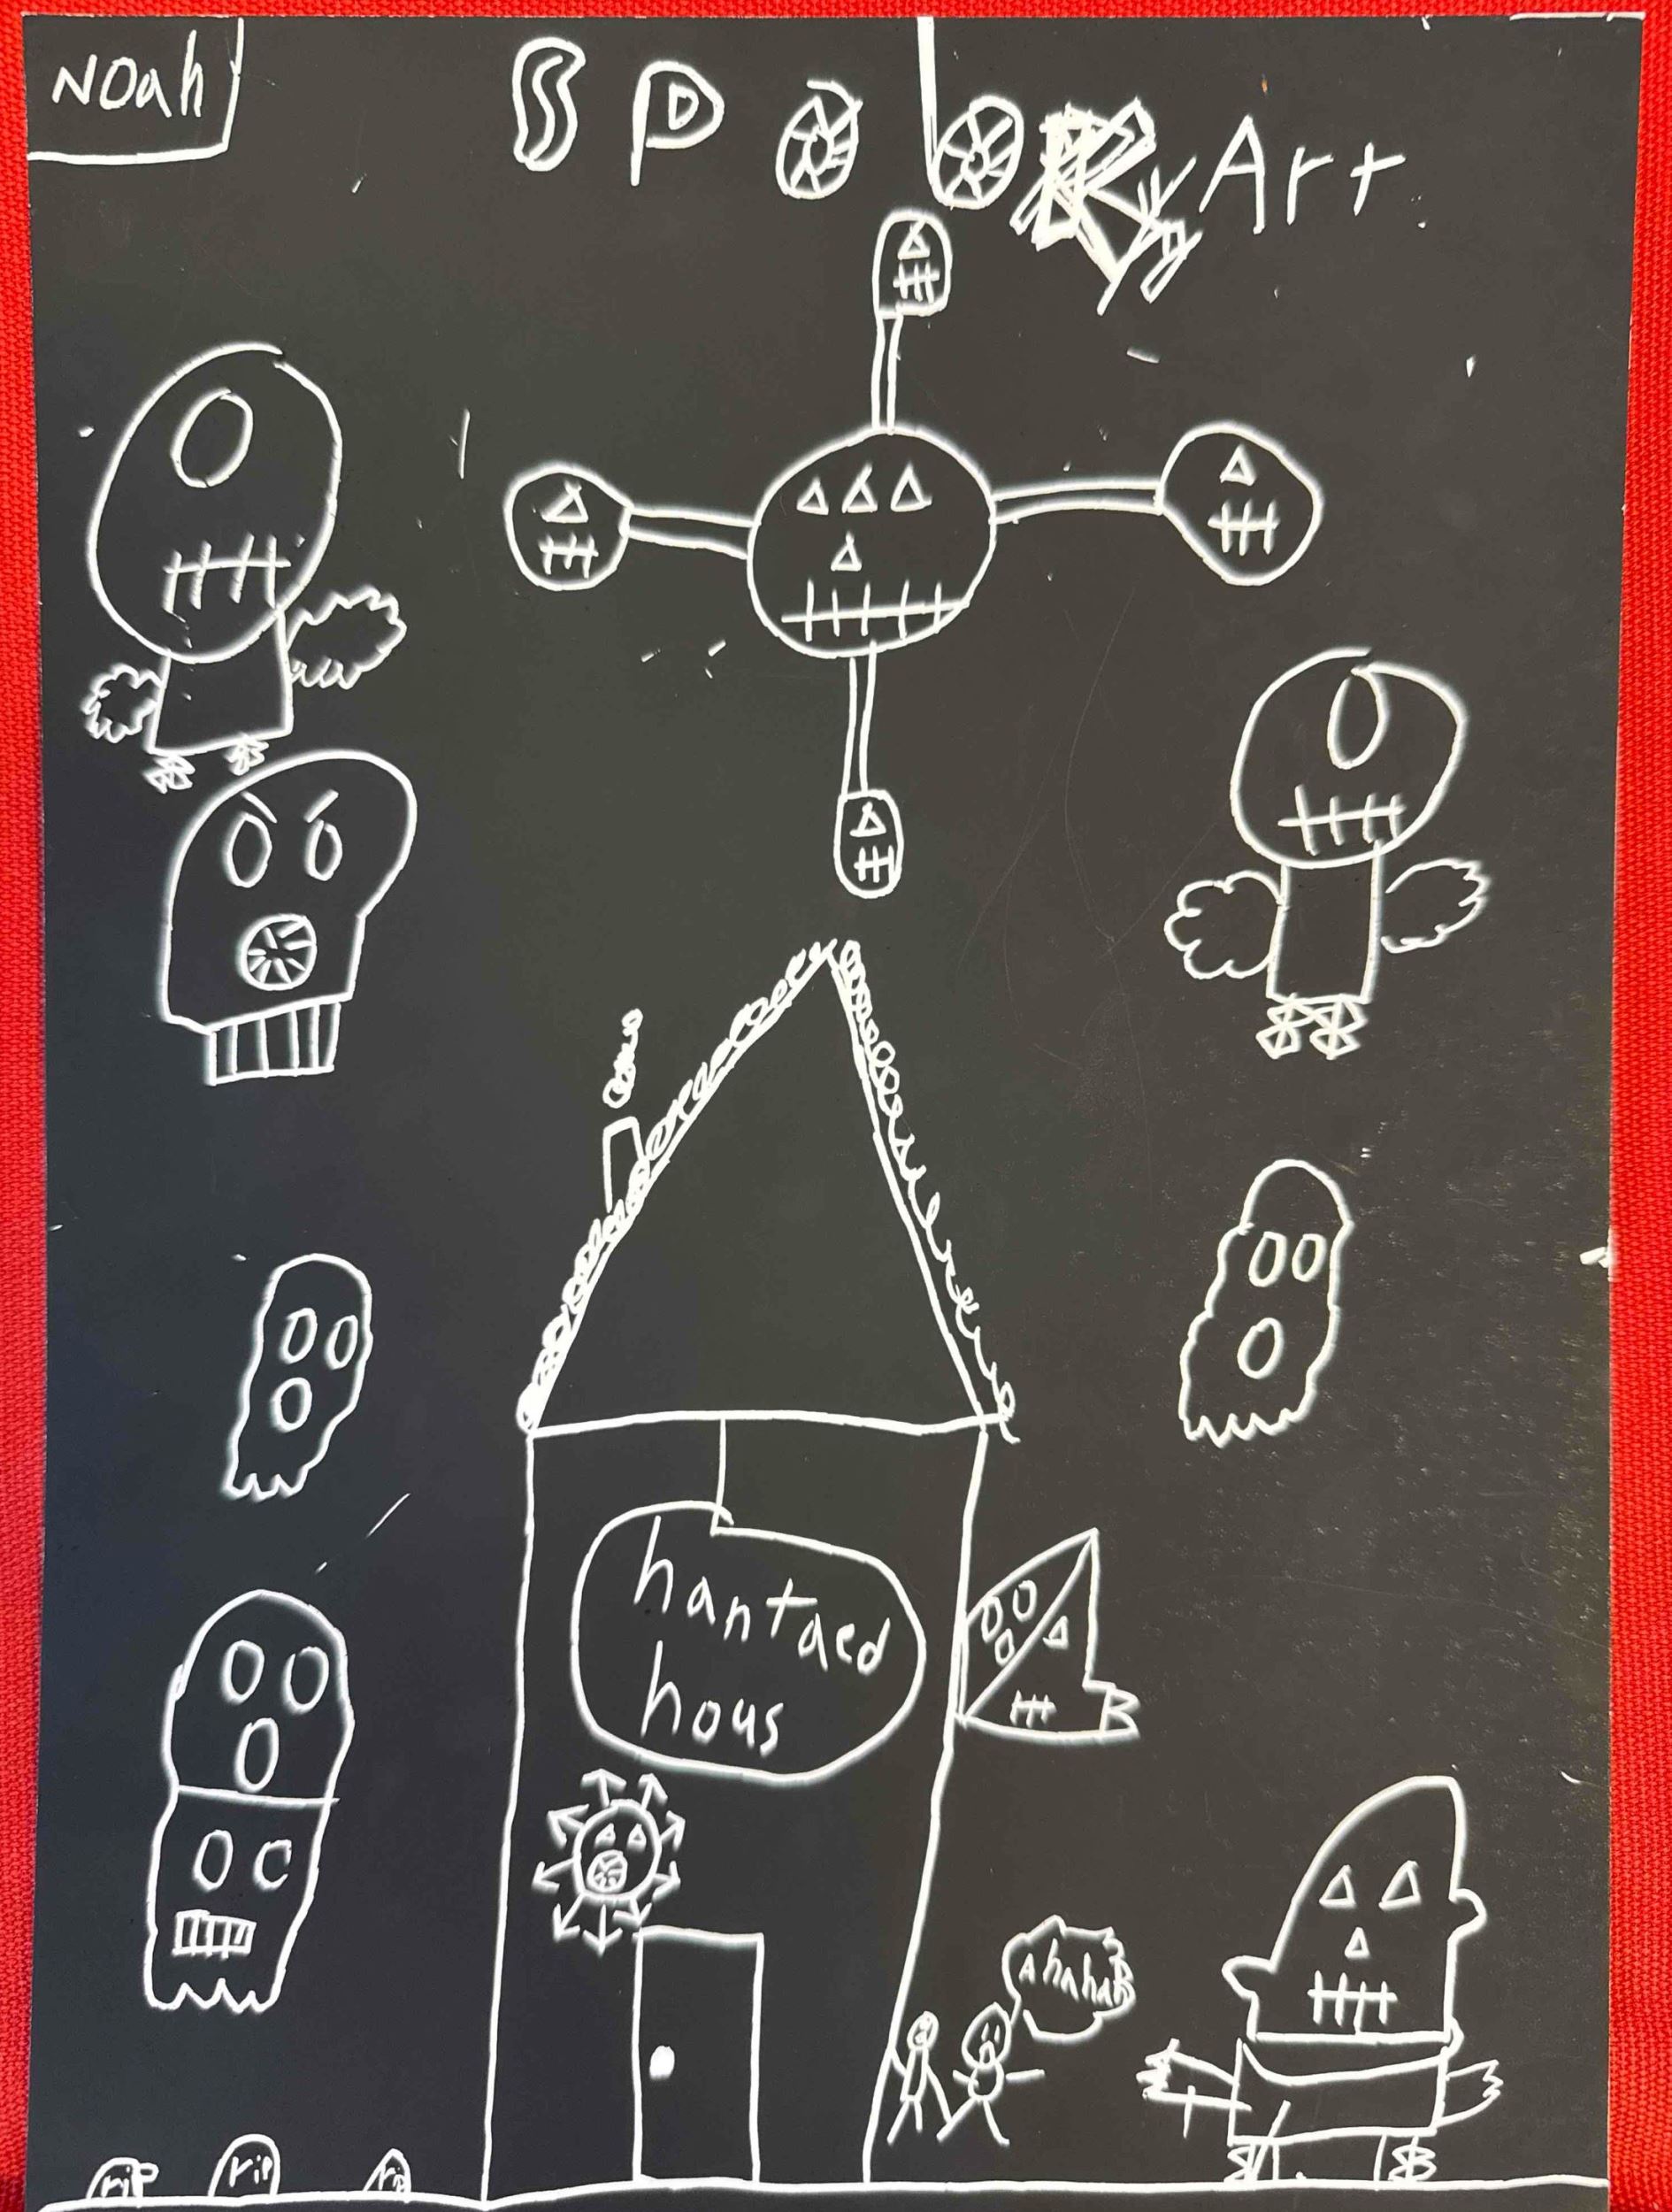 Noah
SPOOKy Art
hantaed
hous
AhahaB
rip rip rip